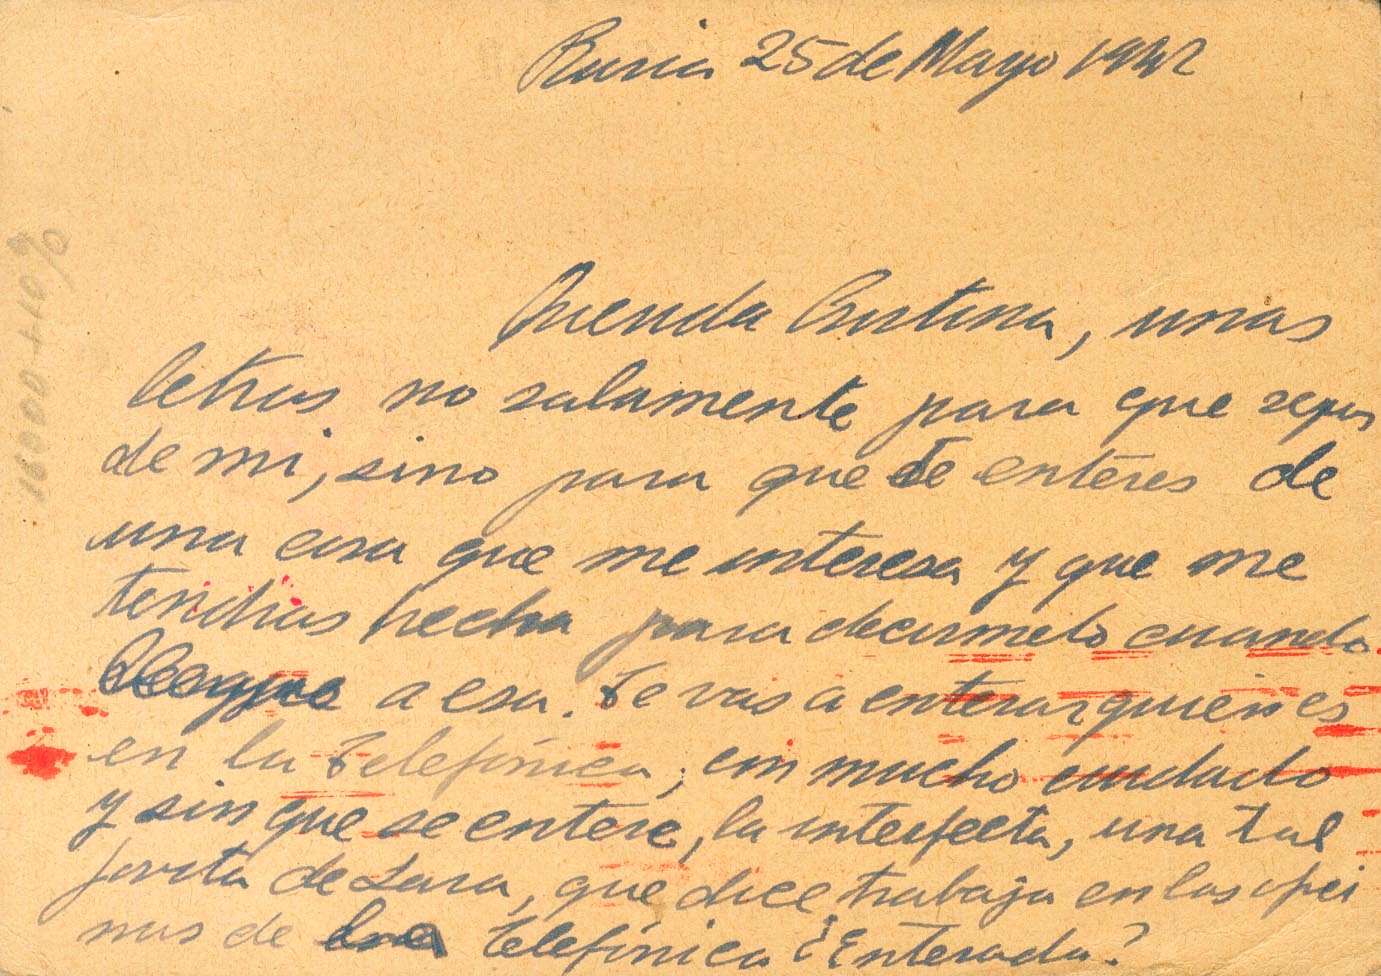 Rusia 25 de Mayo 1942
Querida Cristina, unas
letras no solamente para que sepas
de mi, sino para que te enteres de
una cosa que me interesa y que me
tendras hecha para decirmelo cuando
llegue a esa. Te vas a enterar quien es
en la Telefónica, con mucho cuidado
y sin que se entere, la interfecta, una tal
de Lara, que dice trabaja en las ofici
nas de la Telefónica ¿Enterada?
16000+10%